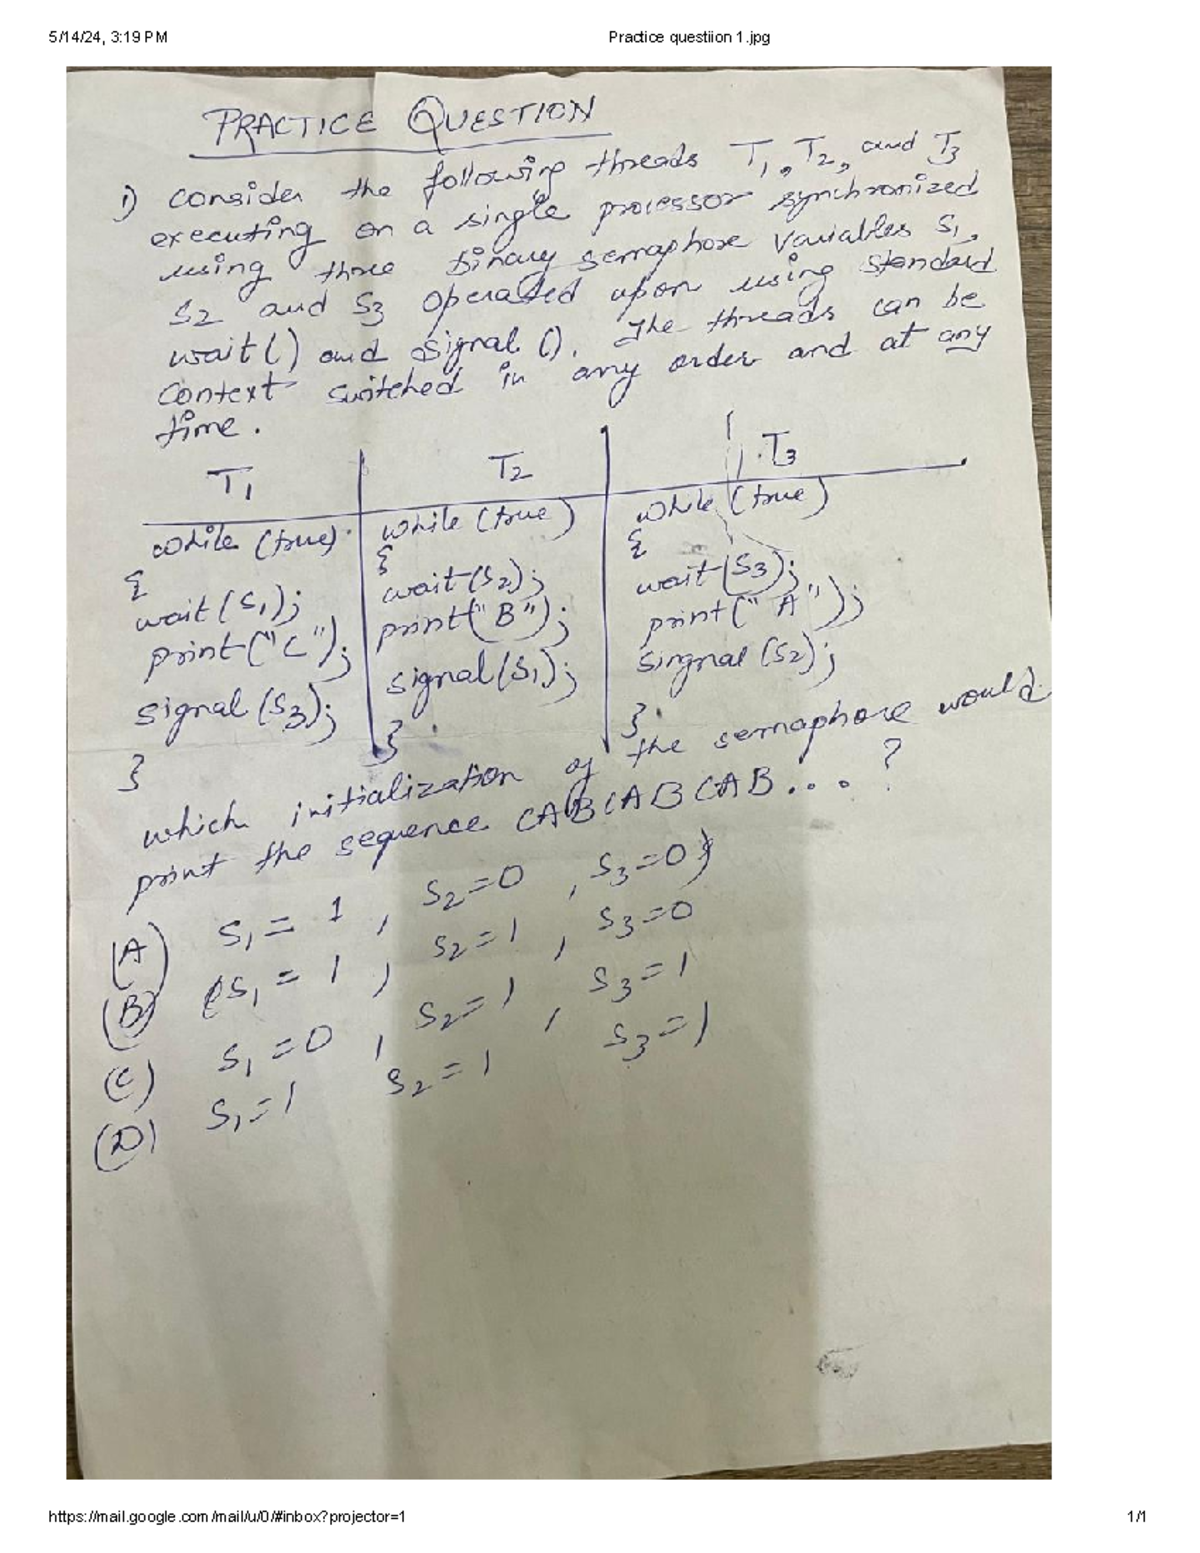 5/14/24, 3:19 PM Practice questiion 1.jpg
PRACTICE QUESTION
1) Consider the following threads T1, T2, and T3
executing on a single processor synchronized
using three binary semaphore variables S1,
S2 and S3 operated upon using standard
wait() and signal(). The threads can be
context switched in any order and at any
time.
T1 T2 T3
while (true) while (true) while (true)
{ { {
wait(S1); wait(S2); wait(S3);
print("C"); print("B"); print("A");
signal(S3); signal(S1); singnal(S2);
} } }
which initialization of the semaphore would
print the sequence CABCABCAB...?
(A) S1 = 1, S2=0, S3=0;
(B) (S1 = 1, S2=1, S3=0
(C) S1=0, S2=1, S3=1
(D) S1=1 S2=1, S3=1
https://mail.google.com/mail/u/0/#inbox?projector=1 1/1